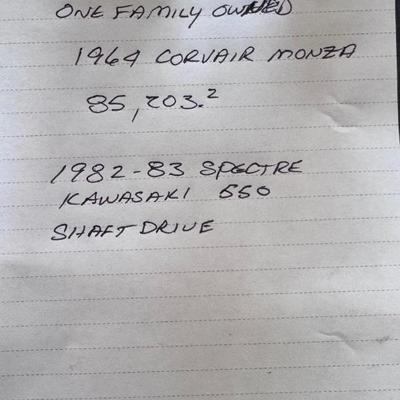 ONE FAMILY OWNED
1964 CORVAIR MONZA
85,203.2
1982-83 SPECTRE
KAWASAKI 550
SHAFT DRIVE